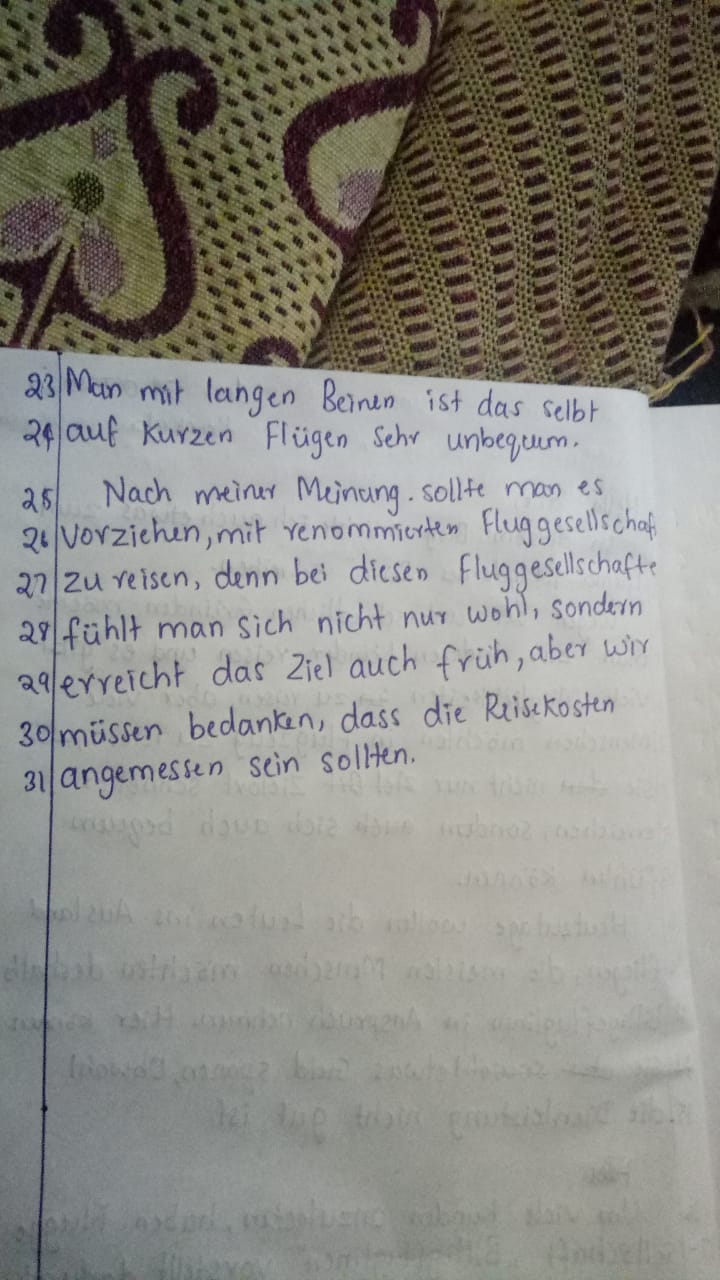 23 Man mit langen Beinen ist das selbt
24 auf kurzen Flügen sehr unbequum.
25 Nach meiner Meinung. sollte man es
26 vorziehen, mit renommierten Fluggesellschaf
27 zu reisen, denn bei diesen Fluggesellschafte
28 fühlt man sich nicht nur wohl, sondern
29 erreicht das Ziel auch früh, aber wir
30 müssen bedanken, dass die Reisekosten
31 angemessen sein sollten.